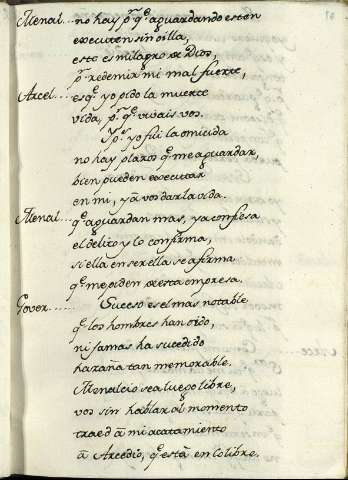 Menal... no hay p.ʳ q.ᵉ aguardando esten
executen sin oilla,
este es milagro de Dios,
p.ʳ redemir mi mal fuerte,
Arcel.... esq.ᵉ yo pido la muerte
vida, p.ʳ q.ᵉ vivais vos.
Y p.ˢ yo fui la omicida
no hay plazos q.ᵉ me aguardar,
bien pueden executar
en mi, y â vos dar la vida.
Menal... q.ᵉ aguardan mas, ya confiesa
el delito y lo confirma,
si ella en ser ella se afirma
q.ᵉ me piden de esta empresa.
Gover...... Suceso es el mas notable
q.ᵉ los hombres han oido,
ni jamas ha sucedido
hazaña tan memorable.
Menalcio sea luego libre,
vos sin hablar al momento
traed â mi acatamiento
â Arcedio, q.ᵉ está en Colibre.